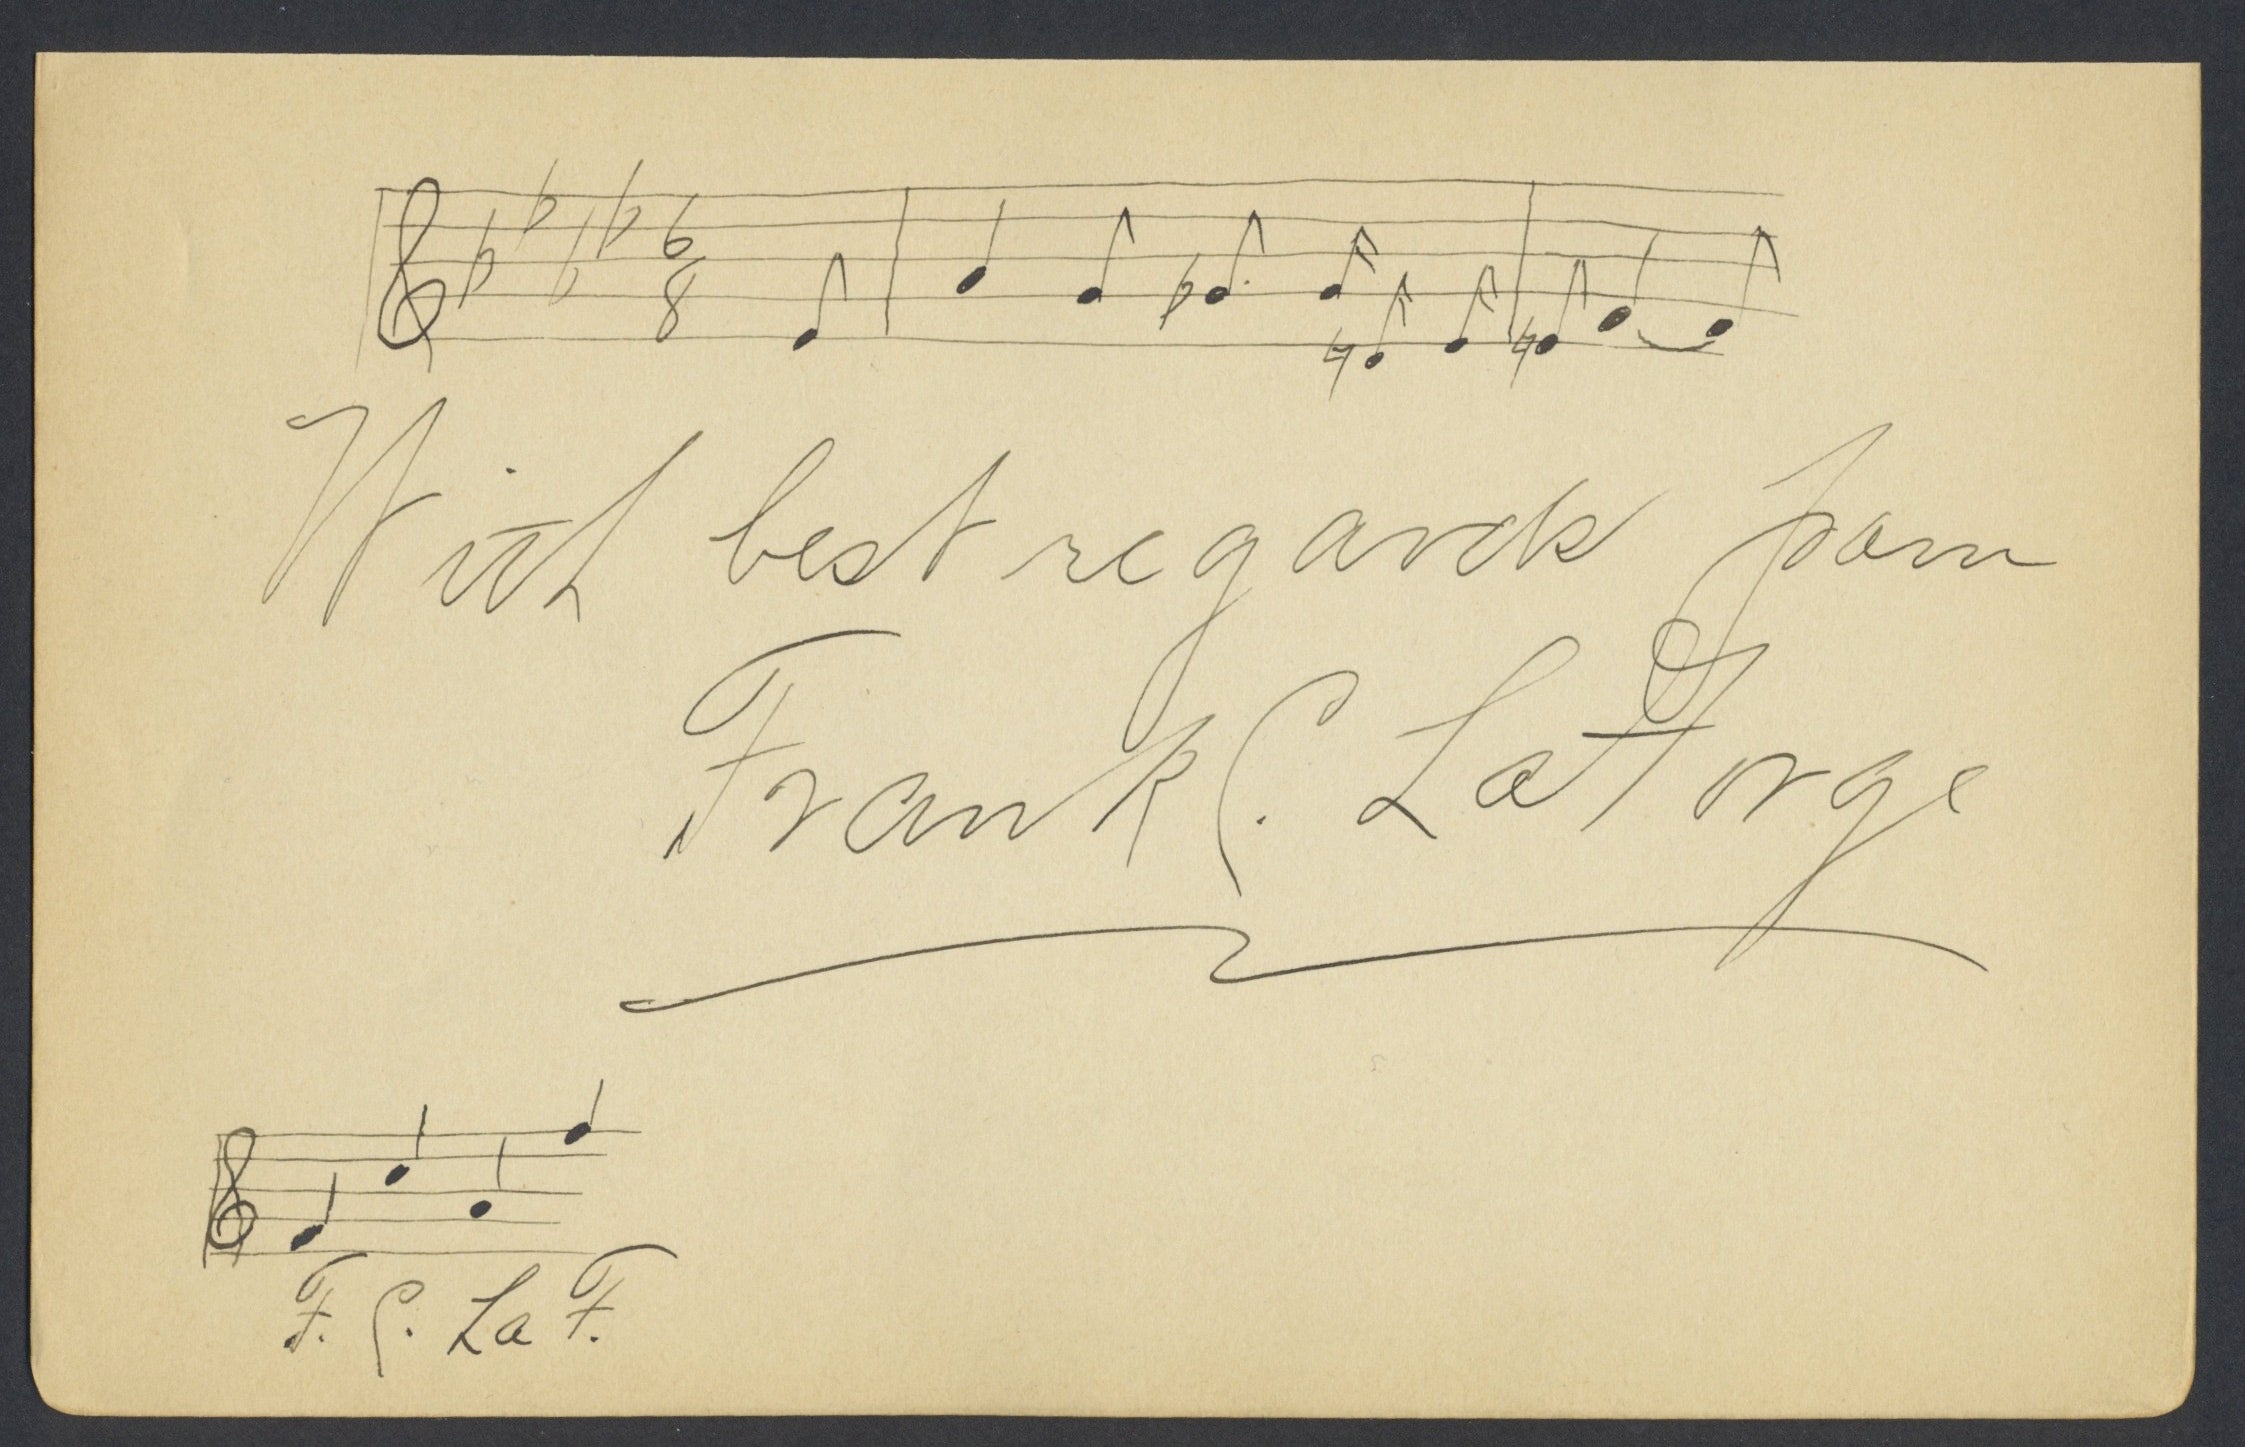 6
8
With best regards from
Frank C. LaForge
F. C. La F.